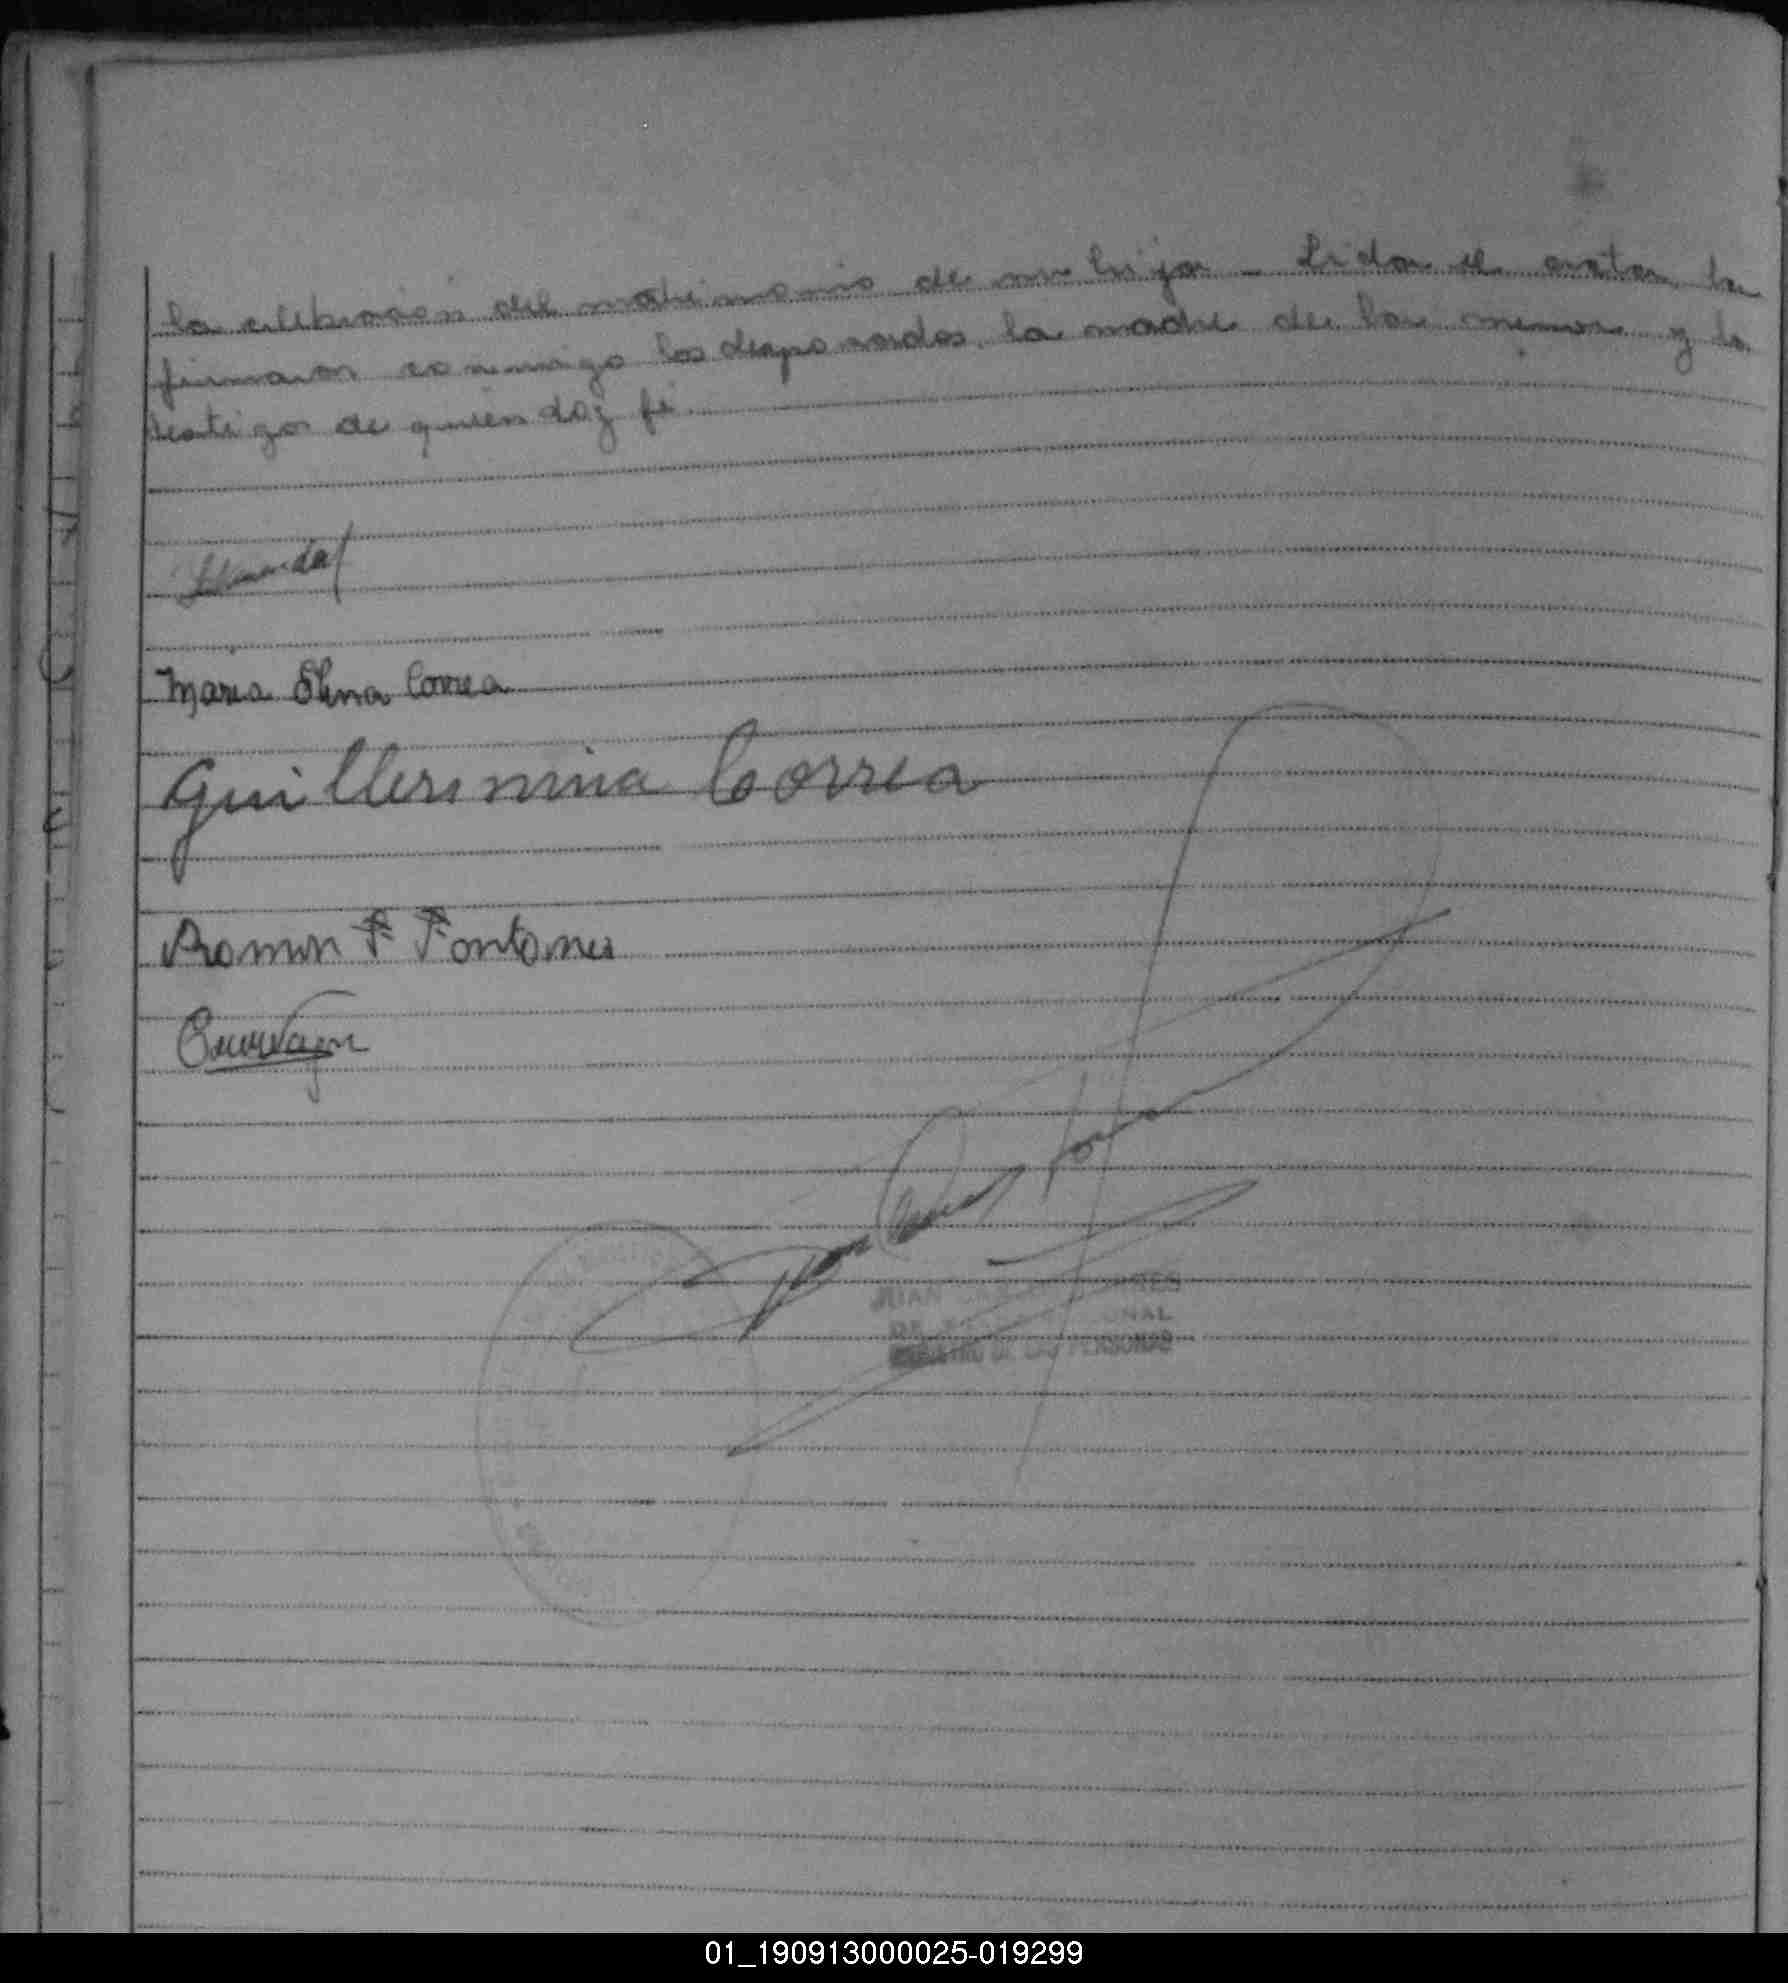 la celebración del matrimonio de su hija - Leida el acta, la
firmaron conmigo los desposados, la madre de la menor y lo
testigos de quien doy fé
Maria Elena Correa
Guillermina Correa
Ramon F. Fontanes
JUAN CARLOS TORRES
REGISTRO DE LAS PERSONAS
01_190913000025-019299